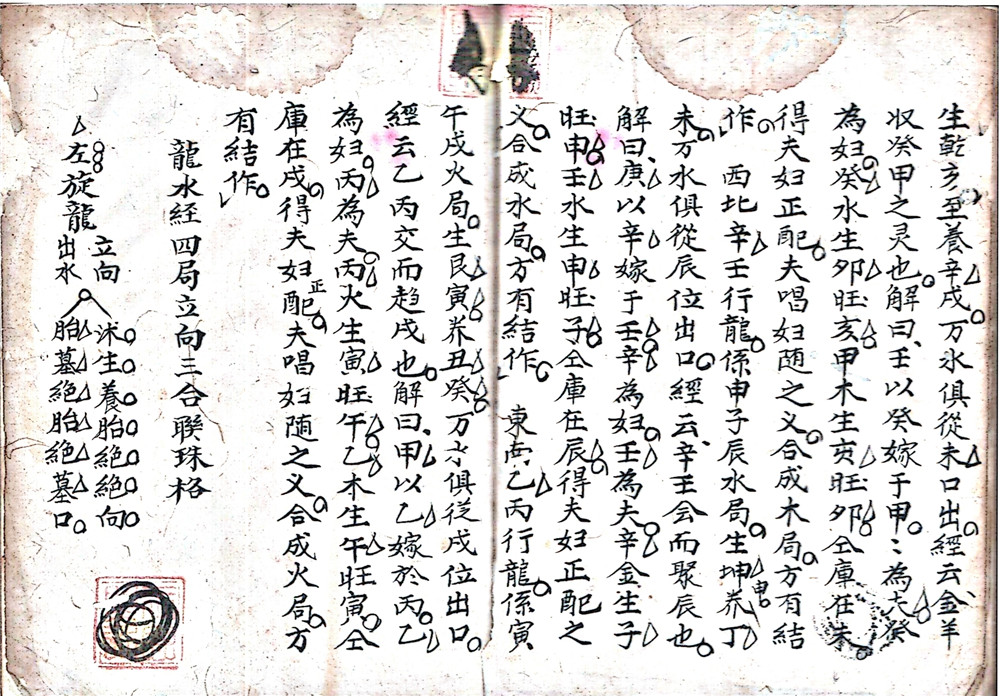 生乾亥至養辛戌万水俱從未口出經云金羊
収癸甲之灵也解曰壬以癸嫁于甲〻為夫癸
為妇癸水生卯旺亥甲木生亥旺卯仝庫在未
得夫妇正配夫唱妇随之义合成木局方有結
作　西北辛壬行龍係申子辰水局生坤申养丁
未万水俱從辰位出口經云辛壬会而聚辰也
解曰庚以辛嫁于壬辛為妇壬為夫辛金生子
旺申壬水生申旺子仝庫在辰得夫妇正配之
义合成水局方有結作　東南乙丙行龍係寅
午戌火局生艮寅养丑癸万水俱従戌位出口
經云乙丙交而趋戌也解曰甲以乙嫁於丙乙
為妇丙為夫丙火生寅旺午乙木生午旺寅仝
庫在戌得夫妇正配夫唱妇随之义合成火局方
有結作
龍水経四局立向三合聯珠格
左旋龍
立向
出水
沐生養胎絕絕向
胎墓絕胎絕墓口